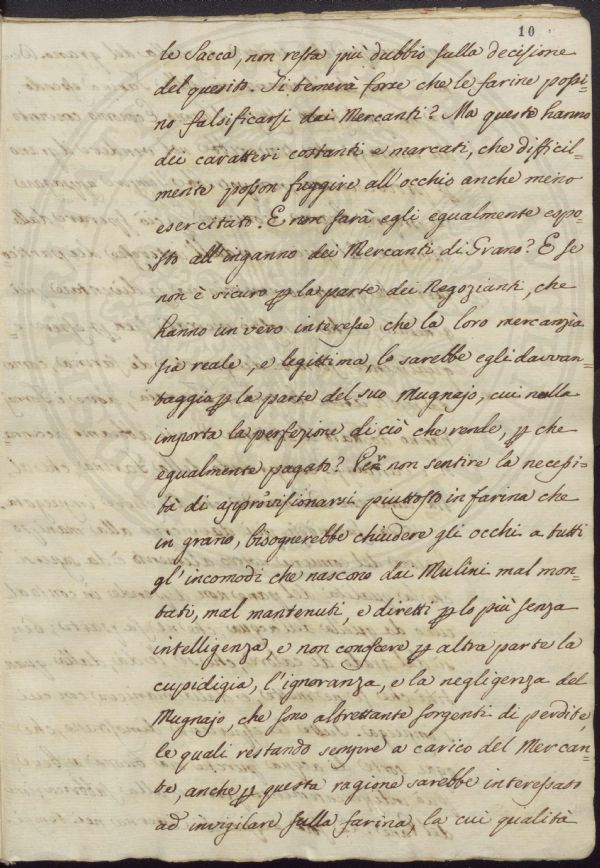 10
le Sacca, non resta più dubbio sulla decisione
del quesito. Si temerà forse che le farine possi=
no falsificarsi dai Mercanti? Ma queste hanno
dei caratteri costanti e marcati, che difficil=
mente posson fuggire all'occhio anche meno
esercitato. E non sarà egli egualmente espo=
sto all'inganno dei Mercanti di Grano? E se
non è sicuro p la parte dei Negozianti, che
hanno un vero interesse che la loro mercanzia
sia reale, e legittima, lo sarebbe egli davvan=
taggio p la parte del suo Mugnajo, cui nulla
importa la perfezione di ciò che rende, p che
egualmente pagato? Per non sentire la necessi=
tà di approvisionarsi piuttosto in farina che
in grano, bisognerebbe chiudere gli occhi a tutti
gl'incomodi che nascono dai Mulini mal mon=
tati, mal mantenuti, e diretti p lo più senza
intelligenza, e non conoscere p altra parte la
cupidigia, l'ignoranza, e la negligenza del
Mugnajo, che sono altrettante sorgenti di perdite,
le quali restando sempre a carico del Mercan=
te, anche p questa ragione sarebbe interessato
ad invigilare sulla farina, la cui qualità